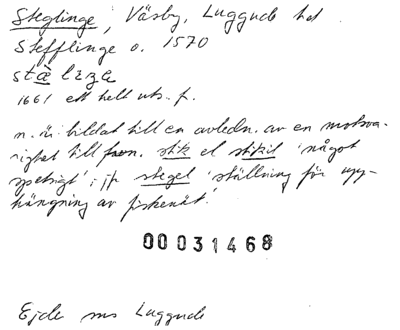 Steglinge, Väsby, Luggude hd
Stefflinge o. 1570
stälize
1661 ett helt uts. f.
n. är bildat till en avledn. av en motsva-
righet till fvn. stik el stikil 'något
spetsigt'; jfr stegel 'ställning för upp-
hängning av fiskenät'.
00031468
Ejde ms Luggude